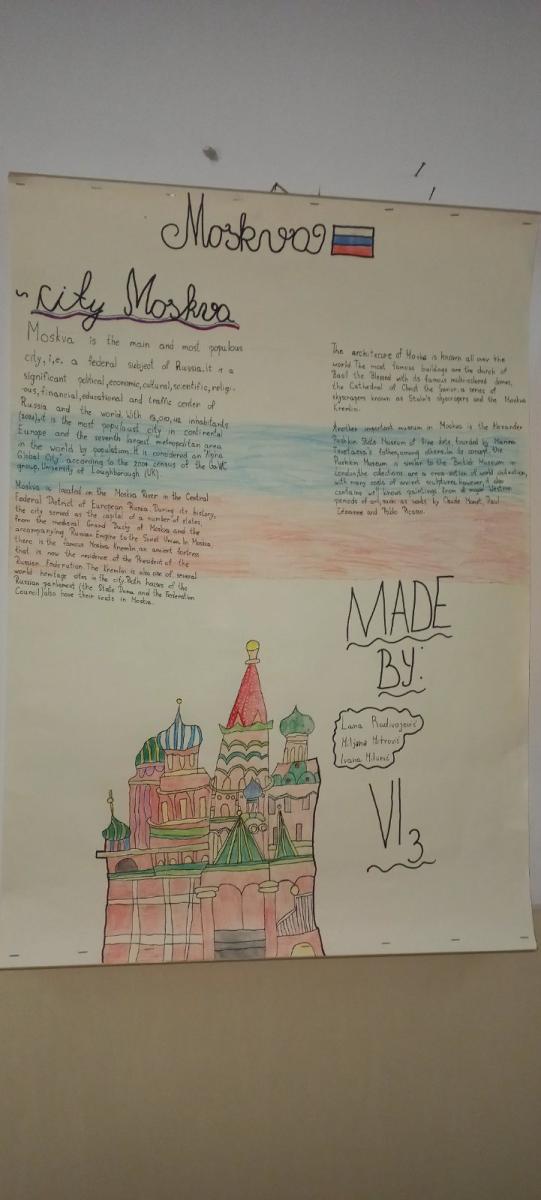 Moskva
~ city Moskva
Moskva is the main and most populous
city, i.e. a federal subject of Russia. It is a
significant political, economic, cultural, scientific, religi-
ous, financial, educational and traffic center of
Russia and the world. With inhabitants
it is the most populous city in continental
Europe and the seventh largest metropolitan area
in the world by population. It is considered an "Alpha
Global City" according to the census of the GaWC
group, University of Loughborough (UK).
Moskva is located on the Moskva River in the Central
Federal District of European Russia. During its history,
the city served as the capital of a number of states,
from the medieval Grand Duchy of Moskva and the
accompanying Russian Empire to the Soviet Union. In Moskva
there is the famous Moskva Kremlin, an ancient fortress
that is now the residence of the President of the
Russian Federation. The Kremlin is also one of several
world heritage sites in the city. Both houses of the
Russian parliament (the State Duma and the Federation
Council) also have their seats in Moskva.
The architecure of Moskva is known all over the
world. The most famous buildings are the church of
Basil the Blessed with its famous multi-colored domes,
the Cathedral of Christ the Savior, a series of
skyscrapers known as Stalin's skyscrapers and the Moskva
Kremlin.
Another important museum in Moskva is the Alexander
Pushkin State Museum of Fine Arts, founded by Marina
Tsvetaeva's father, among others. In its concept, the
Pushkin Museum is similar to the British Museum in
London, the collections are a cross-section of world civilization,
with many casts of ancient sculptures, however, it also
contains well-known paintings from all major Western
periods of art, such as works by Claude Monet, Paul
Cézanne and Pablo Picasso.
MADE
BY:
Lana Radivojević
Miljana Mitrović
Ivana Milunić
VI3